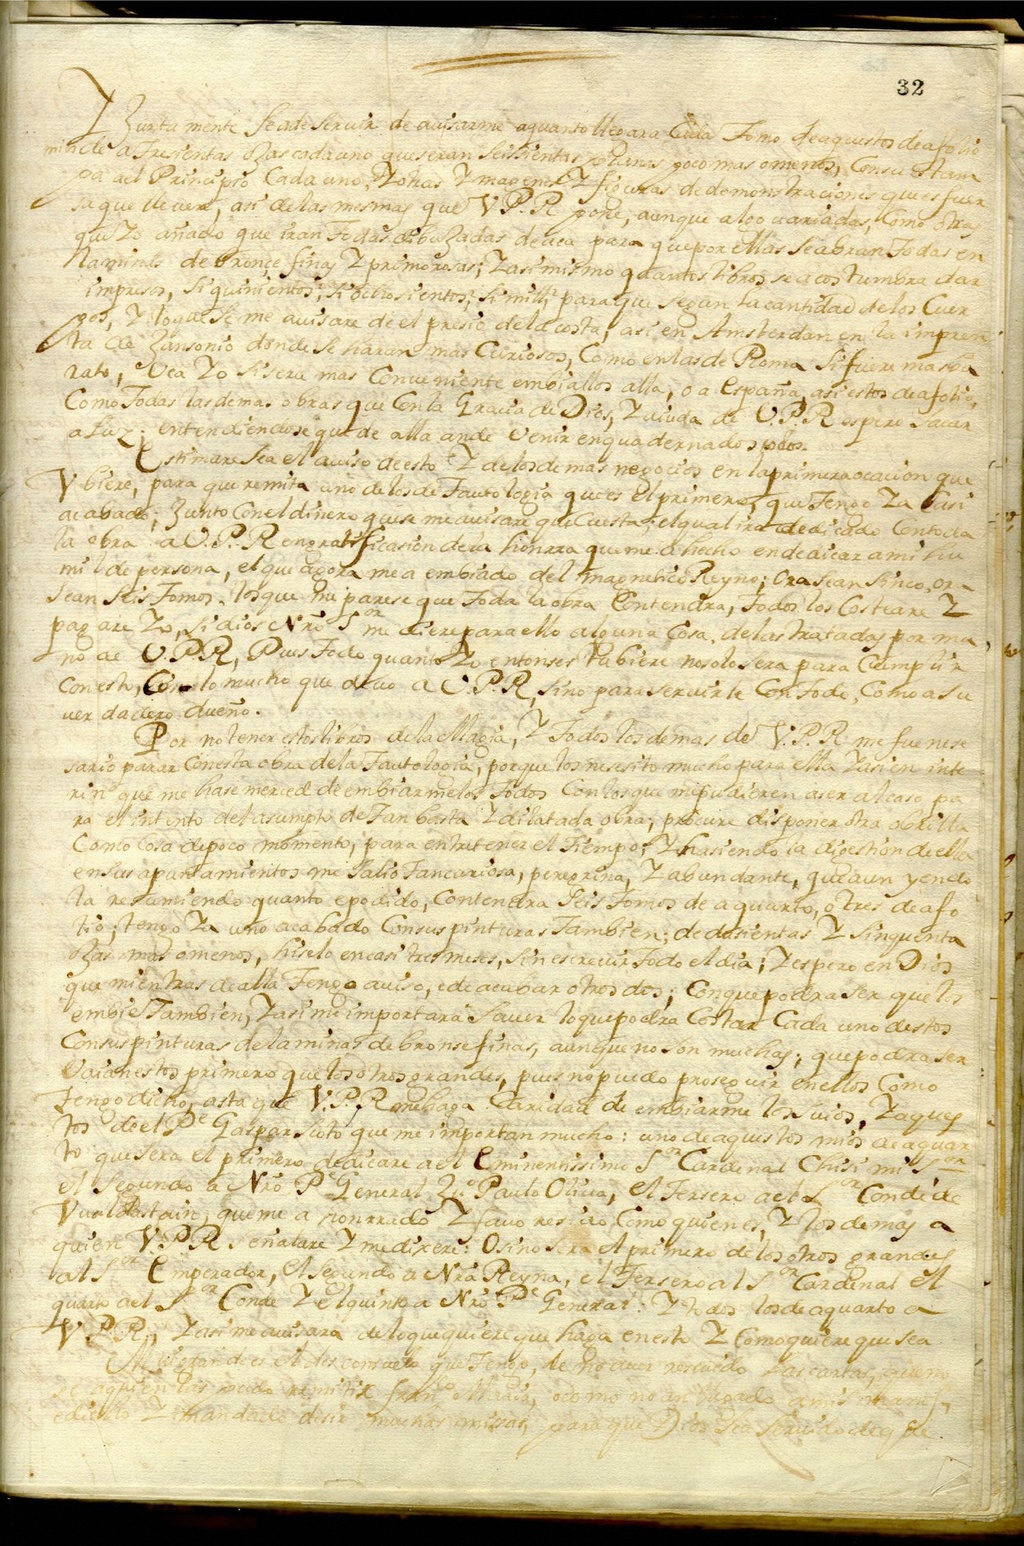 32
Y Zunta mente Se ade Servir de avisarme aquanto llegara Cada Tomo de aquestos de afolio
min de a Tresientas ojas cada uno que seran Seissientas planas poco mas omenos, Con su estam
pa ael Principio Cada uno, Zotras Ymagenes Z figuras de demonstraciones que es fuer
sa que lleven, asi de las mesmas que V.P.R pone, aunque algo variadas, Como otras
que Zo añado que iran Todas dibuZadas de aca para que por ellas Se abran Todas en
laminas de bronçe finas Z primorosas; Zasimismo quantos libros se acostumbra dar
impresos, Si quinientos, Si ochosientos, Si mill, para que segun la cantidad de los Cuer
pos, Z lo que Se me avisare de el presio de la costa, asi en Amsterdan en la impren
ta de Zansonio donde se haran mas Curiosos, Como en las de Roma Si fuere mas ba
rato, Vea Zo Si sera mas Conveniente embiallos alla, o a España, asi estos de afolio,
Como Todas las demas obras que Con la Gracia de Dios, Z aiuda de V.P.R espero Sacar
a luz; entendiendose que de alla ande venir enquadernados
Estimare Sea el aviso de esto Z de los demas negocios en la primera ocacion que
Vbiere, para que remita uno de los de Tautologia que es El primero, que Tengo Za Casi
acabado; Zunto Con el dinero que se me avisare que Cuesta; el qual ira dedicado Con toda
la obra a V.P.R en gratificasion de la honrra que me a hecho en dedicar a mi hu
milde persona, el que agora me a embiado del magnetico Reyno; Ora Sean Sinco, or-
Sean Seis Tomos, los que me parese que Toda la obra Contendra, Todos los Costeare Z
pagare Zo, Si dios Nro Sor me diere para ello alguna Cosa, de las tratadas por ma
no de V.P.R, Pues Todo quanto Zo entonses Tubiere no solo Sera para Cumplir
con esto, Con lo mucho que devo a V.P.R, Sino para servirle Con Todo, Como a Su
verdadero dueño.
Por no tener estos libros de la Magia, Z Todos los demas de V.P.R me fue nese
sario parar Con esta obra de la Tautologia, porque los nesesito mucho para ella Z asi en inte
rin que me hase merced de embiarmelos Todos Con los que mi pudieren aser al caso pa
ra el intento del asumpto de Tan basta Z dilatada obra, procure disponer otra obrilla
Como Cosa de poco momento, para entretener el Tiempo; Z hasiendo la digestion de ella
en sus apuntamientos me Salio Tan curiosa, peregrina, Z abundante, que aun yendo
la resumiendo quanto e podido, Contendra Seis Tomos de a quarto, o tres de afo
lio; tengo Za uno acabado Con sus pinturas Tambien; de dosientas Z Sinquenta
ojas mas omenos, hiselo en casi tres meses, Sin escrevir Todo el dia; Z espero en Dios
que mientras de alla Tengo aviso, e de acabar otros dos; Con que podra Ser que los
embie Tambien, Z asi me importara Saver lo que podra Costar Cada uno destos
Con sus pinturas de laminas de bronse finas, aunque no son muchas; que podra ser
Vaian estos primero que los otros grandes, pues no puedo proseguir en ellos Como
Tengo dicho, asta que V.P.R me haga Caridad de embiarme los Suios, Z aques
tos de el Pe Gaspar Scoto que me importan mucho: uno de aquestos mios de aquar
to que Sera el primero dedicare ael Eminentissimo Sor Cardenal Chisi mi Sor
el Segundo a Nro Pe General Zu.o Paulo Oliva, el Tersero ael Sor Conde de
Vualdstain, que me a honrrado Z favoresido Como quien es, Z los demas a
quien V.P.R Señalare Z me dixere: O sino Sera el primero de los otros grandes
al Sor Emperador, el segundo a Nra Reyna, el Tersero al Sor Cardenal El
quarto ael Sor Conde Z el quinto a Nro Pe General: Z todos los de aquarto a
V.P.R., Z asi me avisara de lo que quiere que haga en esto Z Como quiere que Sea
Mui grande es el desconsuelo que Tengo, de no aver resevido las cartas, que
remitir o como no an llegado a mis manos,
e dicho Z mandado desir muchas missas, para que Dios Sea Servido de que